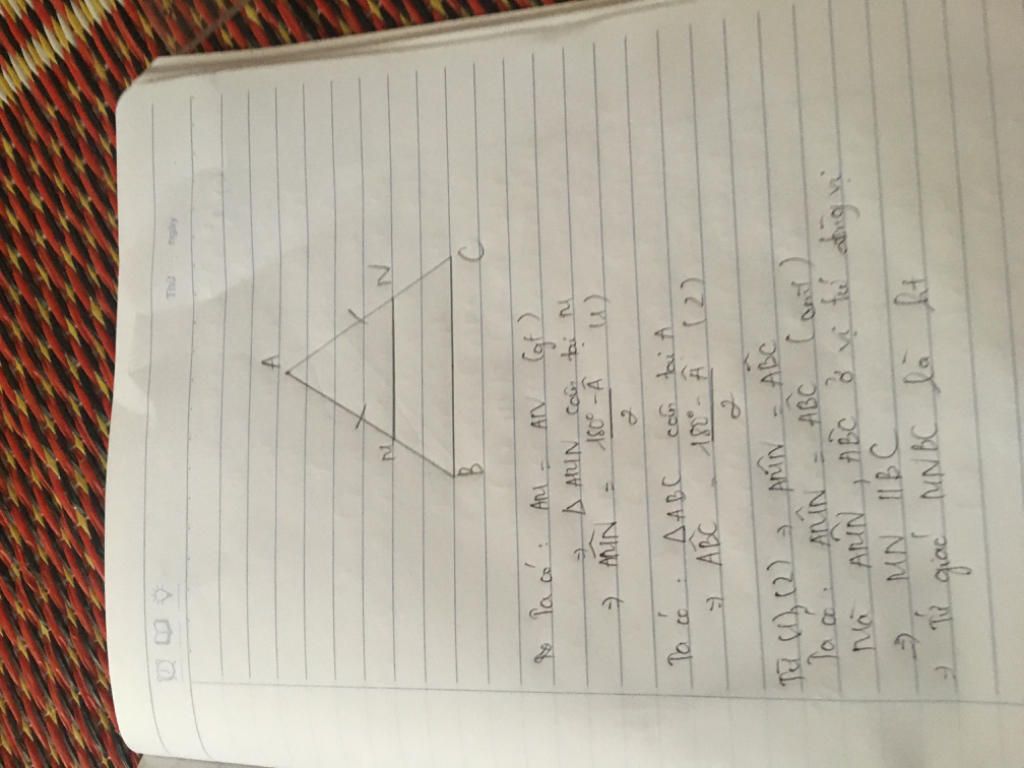 Thứ ngày
A
N N
B C
Ta có: AM = AN (gt)
⇒ Δ AMN cân tại M
⇒ AMN̂ = 180° - Â / 2 (1)
Ta có: Δ ABC cân tại A
⇒ ABĈ = 180° - Â / 2 (2)
Từ (1), (2) ⇒ AMN̂ = ABĈ
Ta có: AMN̂ = ABĈ (cmt)
Mà AMN̂, ABĈ ở vị trí đồng vị
⇒ MN // BC
⇒ Tứ giác MNBC là ht